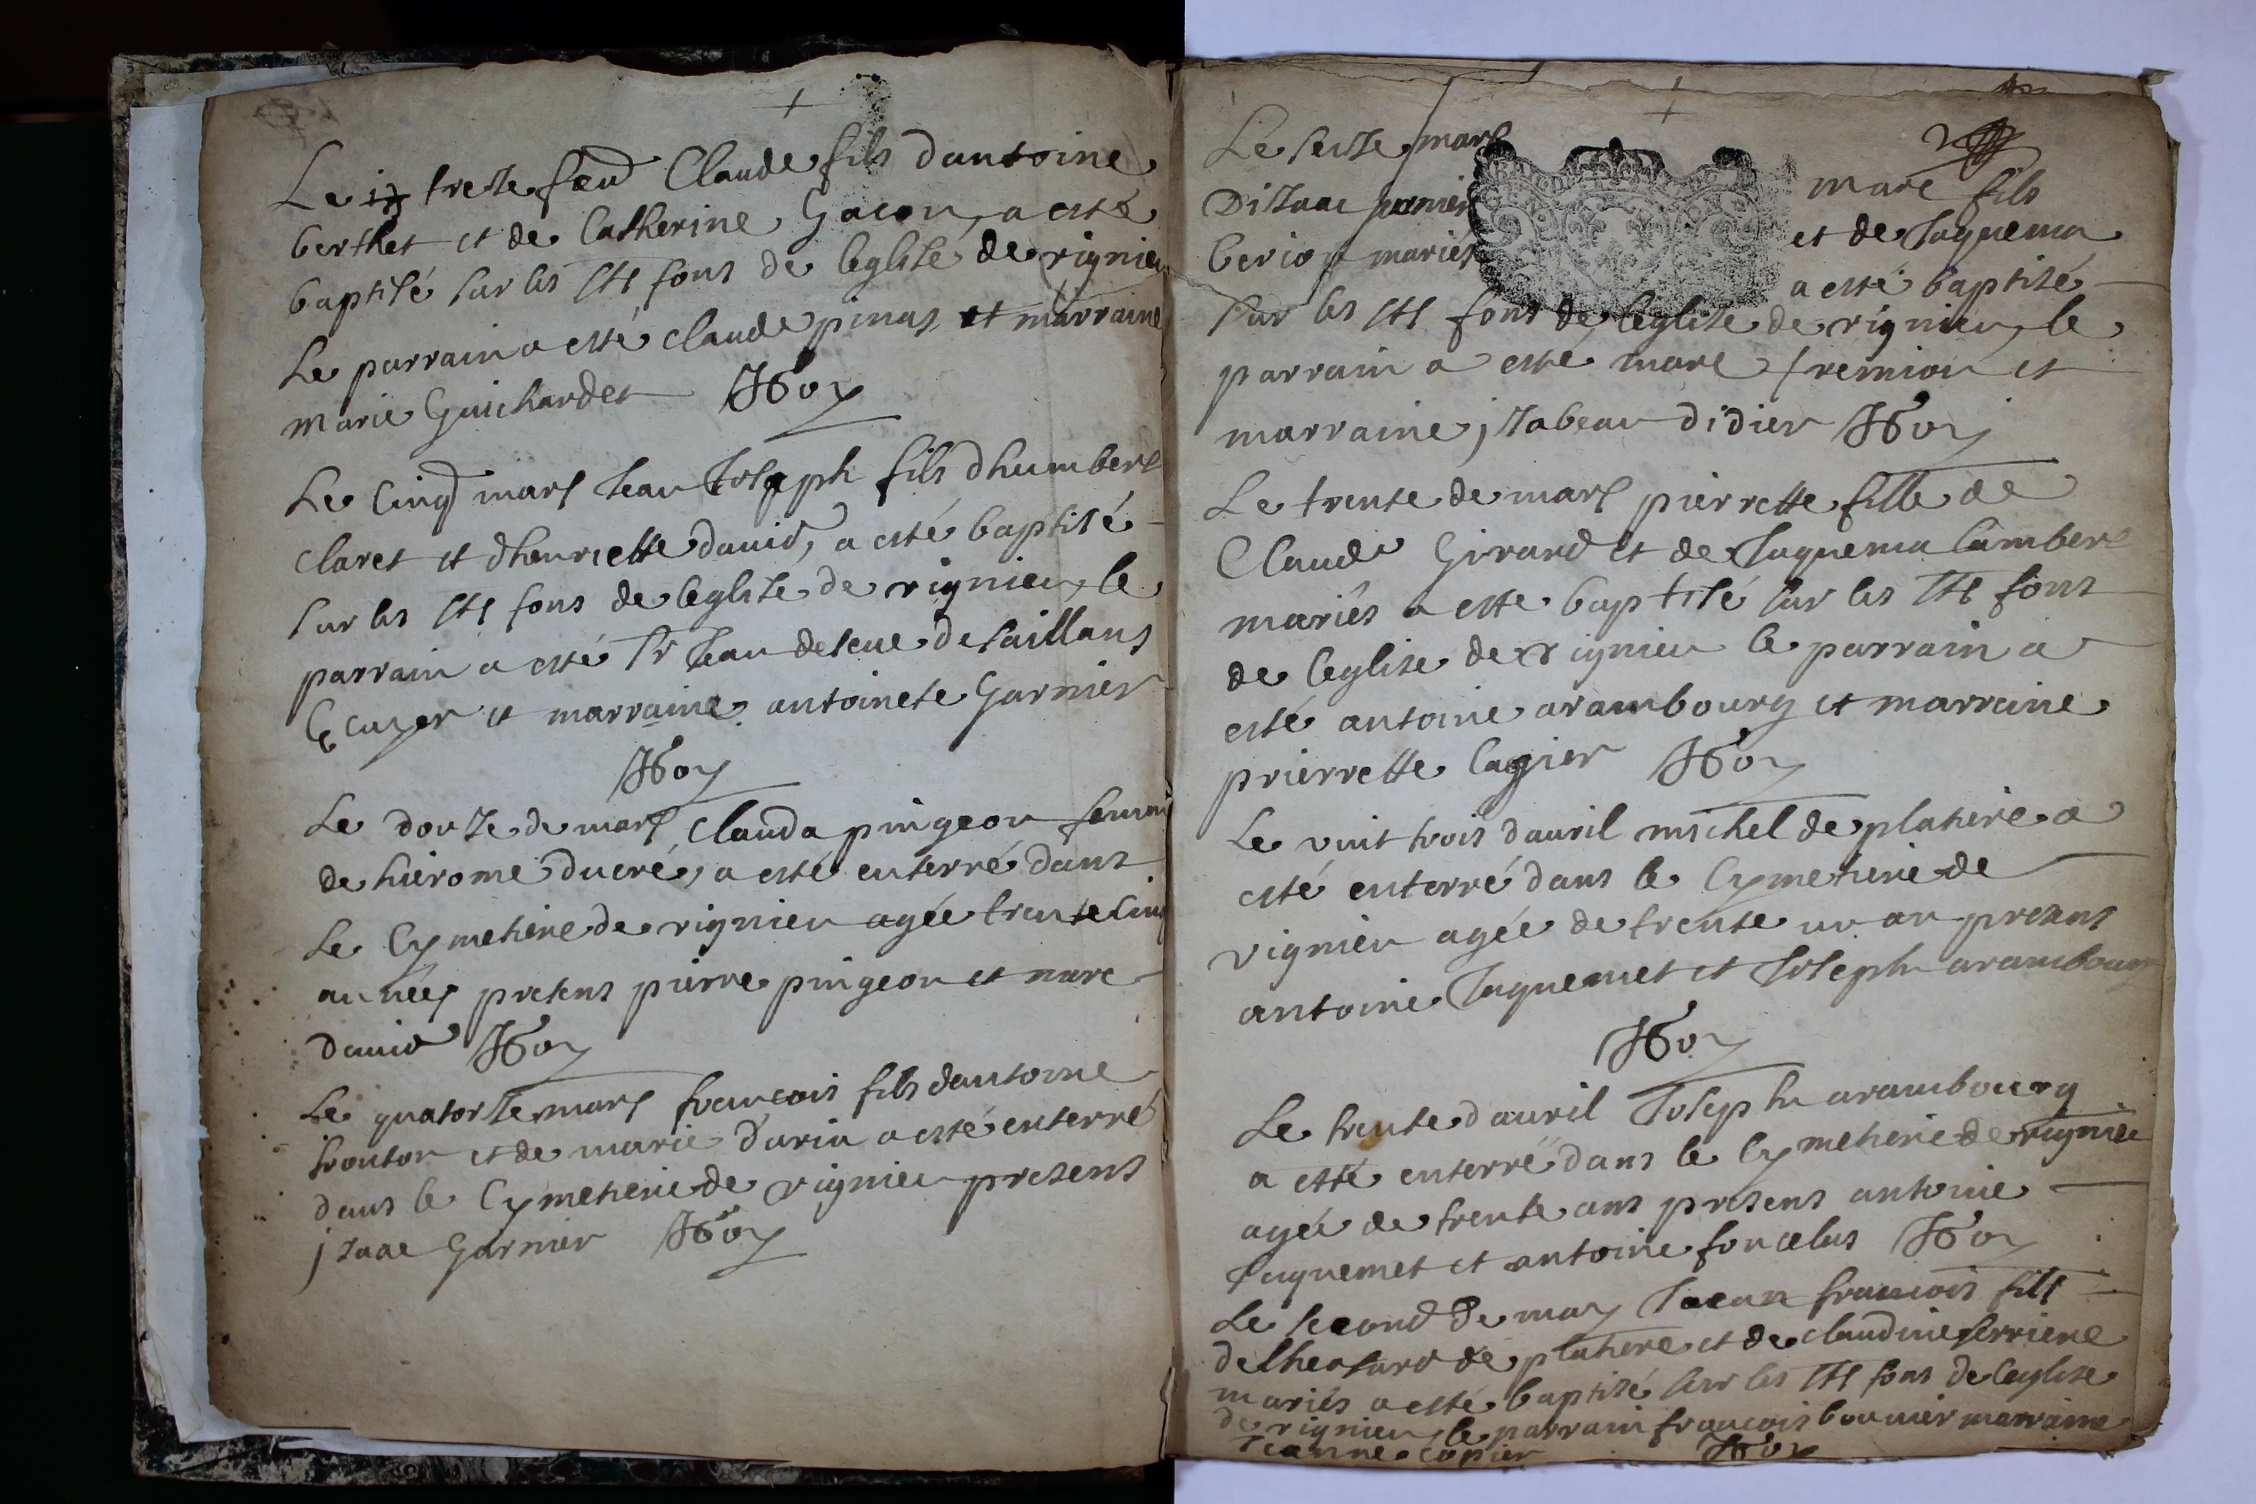 Le treze feu Claude fils dantoine
berthet et de Catherine Gacon, a esté
baptisé sur les Sts fons de leglise de rignieu
Le parrain a esté claude pinas et marraine
marie Guichardet
Le Cinq mars Jean Joseph fils dhumbert
claret et dhenriette david, a esté baptisé
sur les Sts fons de leglise de rignieu, le
parrain a esté Sr Jean de seue de saillans
Ecuyer et marraine antoinete Garnier
Le douze de mars Clauda pingeon femme
de hierome Ducré, a esté enterré dans
Le Cymetiere de rignieu agée trente cinq
années presens pierre pingeon et marc
david
Le quatorse mars francois fils dantoine
et de marie Darin a esté enterré
dans le Cymetiere de rignieu presens
jzaac Garnier
Le seize mars marc fils
Dizaac et de Jaquema
mariés a esté baptisé
sur les Sts fons de leglise de rignieu, le
parrain a esté marc et
marraine jzabeau didier
Le trente de mars pierrette fille de
Claude Girard et de Jaquema Lambert
mariés a esté baptisé sur les Sts fons
de leglise de rignieu le parrain a
esté antoine arambourg et marraine
prierrette Cagier
Le vint trois dauril michel de platiere a
esté enterré dans le Cymetiere de
rignieu agée de trente un an presens
antoine Jaquemet et Joseph arambourg
Le trente dauril Joseph arambourg
a esté enterré dans le Cymetiere de rignieu
agée de trente ans presens antoine
Juquemet et antoine
Le second de may francois fils
de platiere et de claudine ferriere
mariés a esté baptisé sur les Sts fons de leglise
de rignieu, le parrain francois bonnier marraine
Jeanne Copier